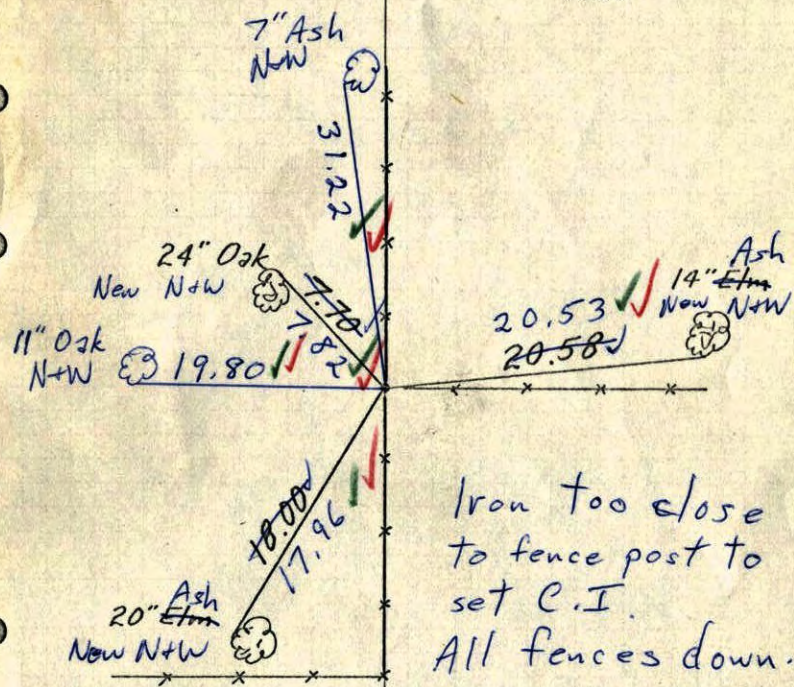 7" Ash
N+W
31.22
24" Oak
New N+W
7.70
7.82
11" Oak
N+W
19.80
Ash
14" Elm
New N+W
20.53
20.58
18.00
17.96
Ash
20" Elm
New N+W
Iron too close
to fence post to
set C.I.
All fences down.